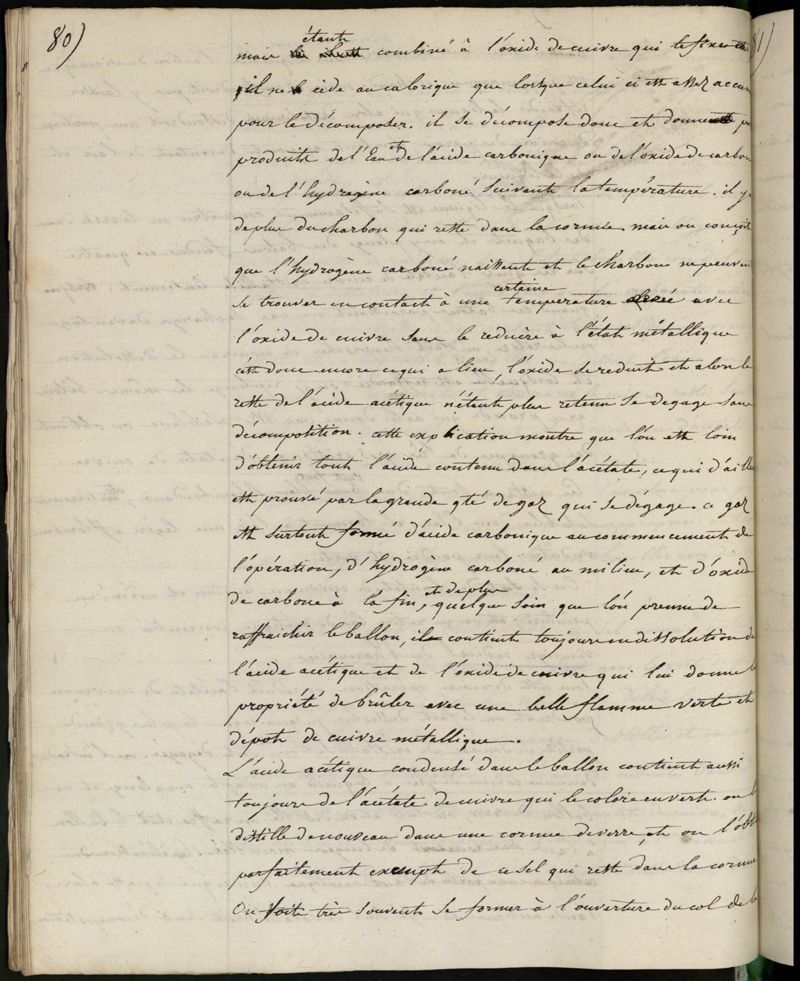 80)
étant
mais combiné à l'oxide de cuivre qui le fixe
il ne cède au calorique que lorsque celui ci est assez accum
pour le décomposer. il se décompose donc et donne p
produits de l'Eau et de l'acide carbonique ou de l'oxide de carbon
ou de l'hydrogène carboné suivant la température. il y
de plus du charbon qui reste dans la cornue mais on conçoit
que l'hydrogène carboné naissant et le charbon ne peuven
certaine
se trouver en contact à une température élevée avec
l'oxide de cuivre sans le reduire à l'état métallique
c'est donc encore ce qui a lieu, l'oxide se reduit et alors le
reste de l'acide acétique n'étant plus retenu se degage sans
décomposition. cette explication montre que l'on est loin
d'obtenir tout l'acide contenu dans l'acétate, ce qui d'aille
est prouvé par la grande qté de gaz qui se dégage. ce gaz
est surtout formé d'acide carbonique au commencement de
l'opération, d'hydrogène carboné au milieu, et d'oxide
de carbone à la fin, et de plus quelque soin que l'on prenne de
raffraichir le ballon, il contient toujours en dissolution de
l'acide acétique et de l'oxide de cuivre qui lui donne la
propriété de brûler avec une belle flamme verte et
dépots de cuivre métallique.
L'acide acétique condensé dans le ballon contient aussi
toujours de l'acétate de cuivre qui le colore en vert. on le
distille de nouveau dans une cornue de verre, et on l'obt
parfaitement exempt de ce sel qui reste dans la cornue
On voit très souvent se former à l'ouverture du col de la
81)